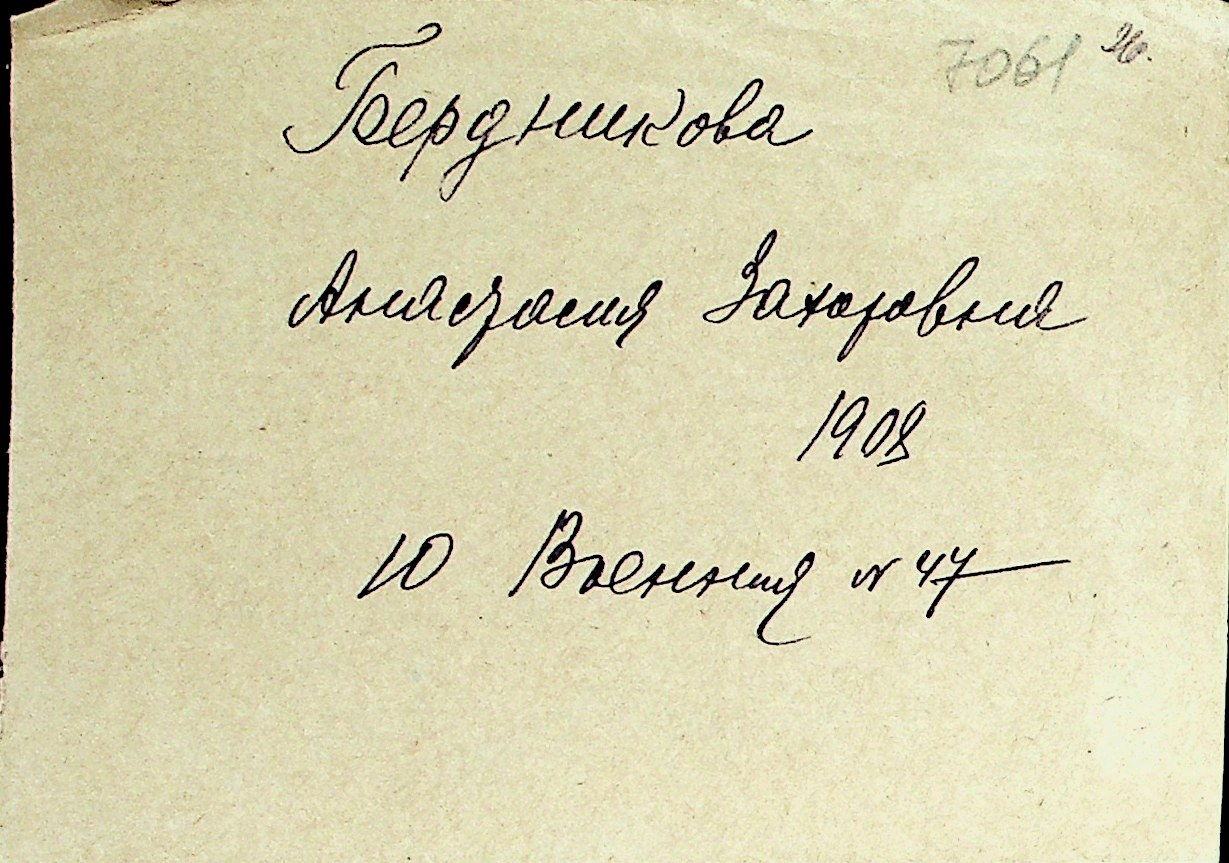 7061 26.
Бердникова
Анастасия Захаровна
1908
10 Военная № 47